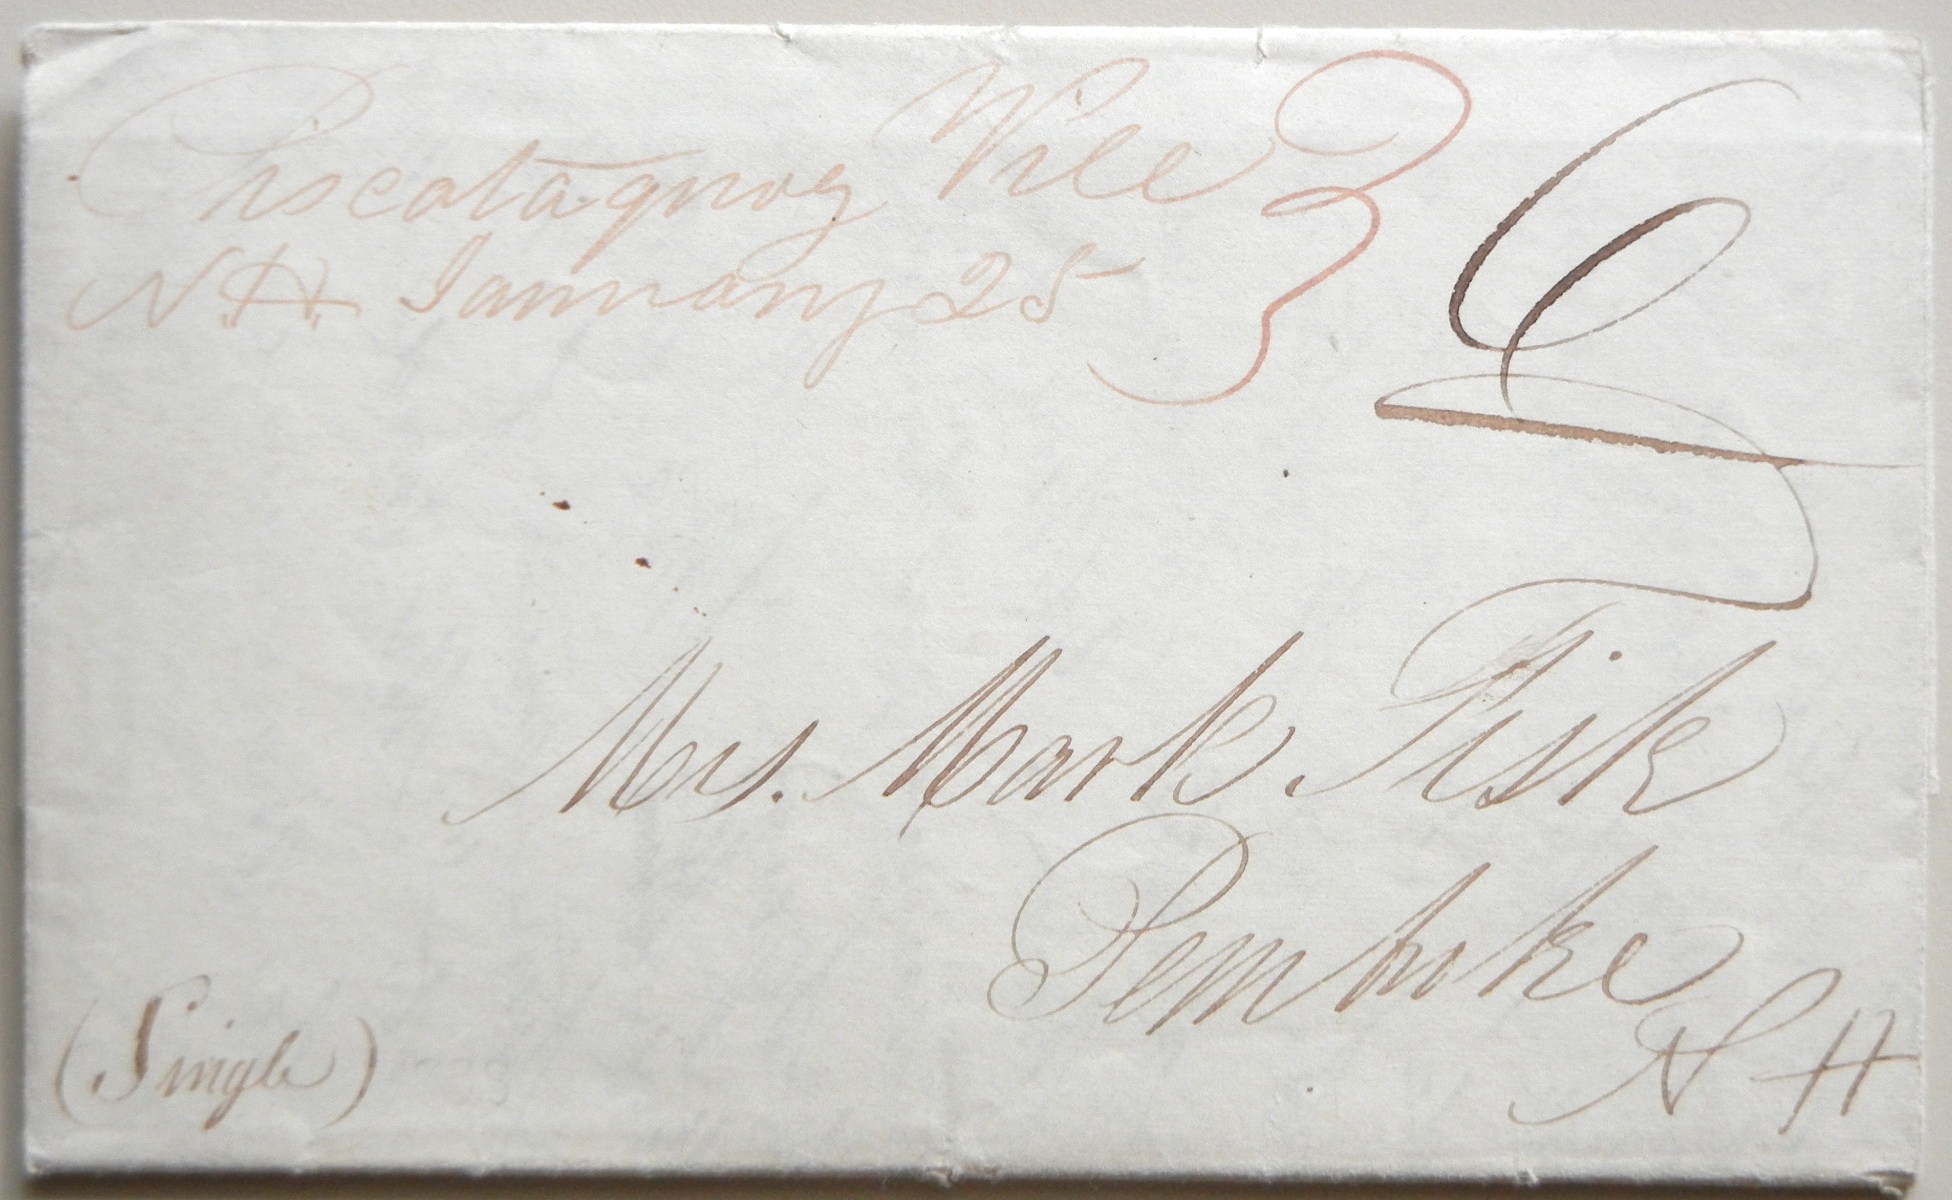 Piscataquog Ville
N.H. January 25
6
Mrs. Mark Fisk
Pembroke
N H
(Single)